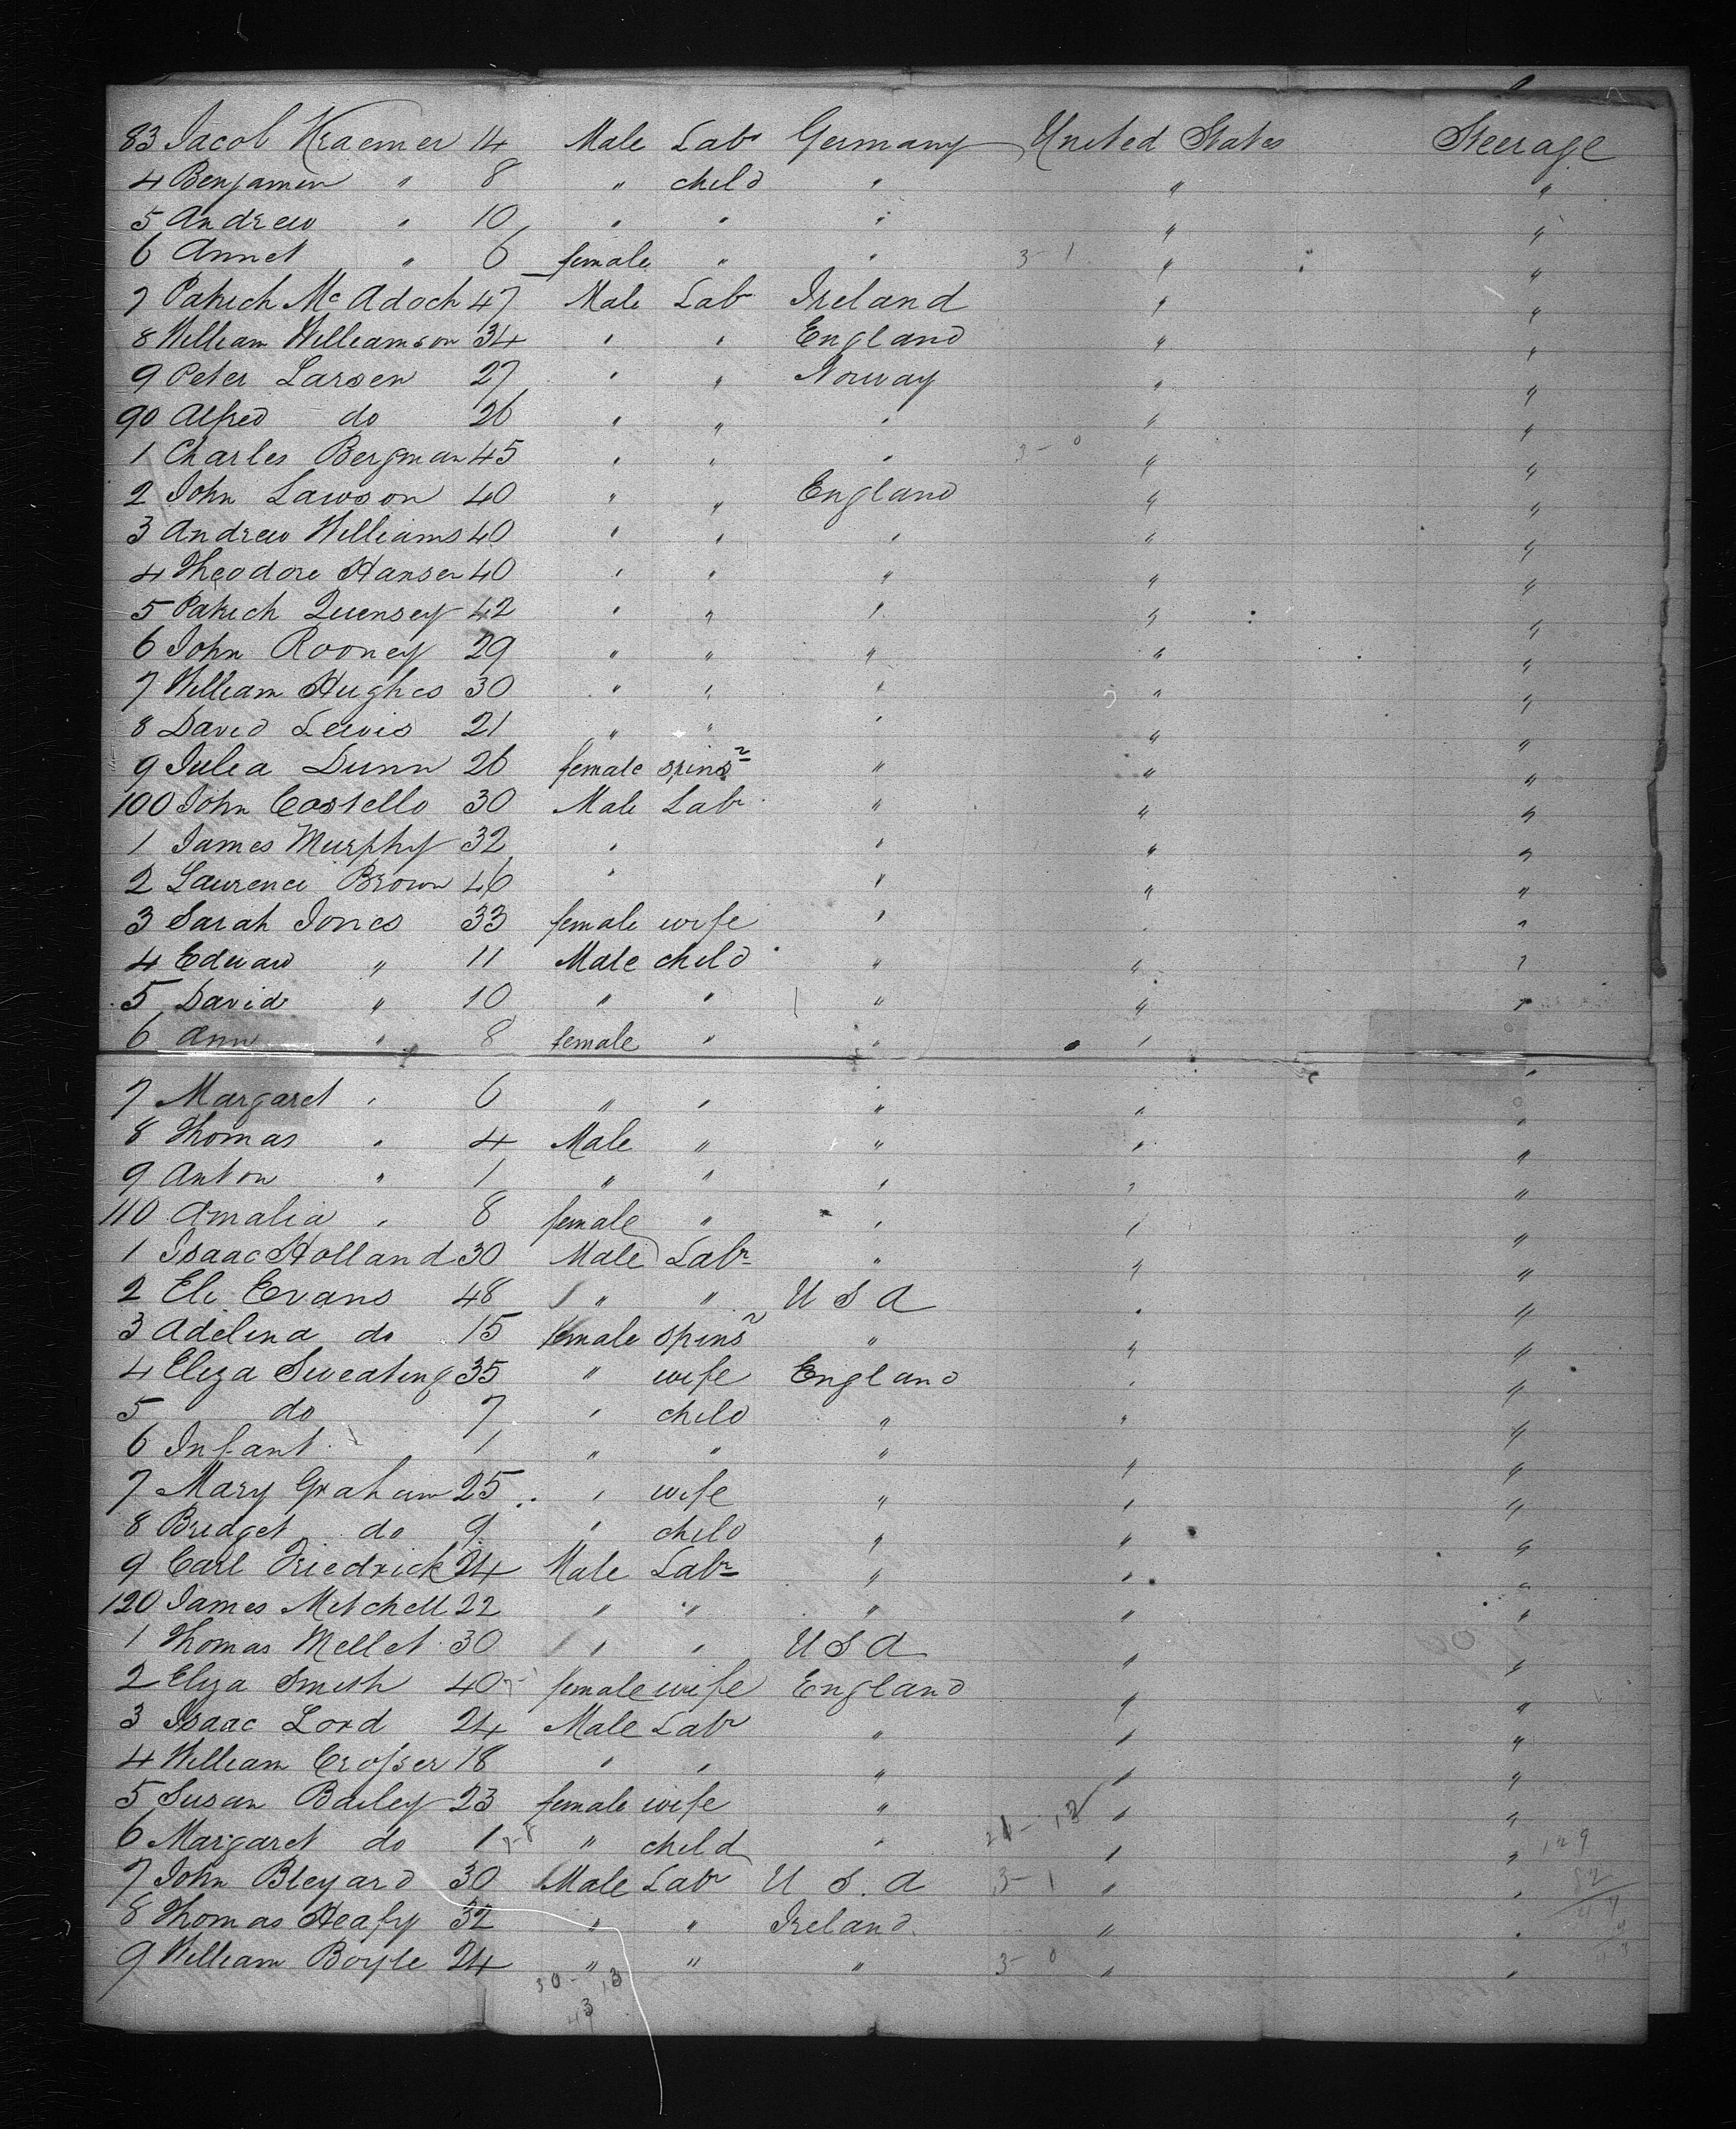 83 Jacob Kraemer 14 Male Labr Germany United States Steerage
4 Benjamin " 8 " child " " "
5 Andrew " 10 " " " " "
6 Annet " 6 female " " 3-1 " "
7 Patrick McAdoch 47 Male Labr Ireland " "
8 William Williamson 34 " " England " "
9 Peter Larsen 27 " " Norway " "
90 Alfred do 26 " " " " "
1 Charles Bergman 45 " " " 3-0 " "
2 John Lawson 40 " " England " "
3 Andrew Williams 40 " " " " "
4 Theodore Hansen 40 " " " " "
5 Patrick Quensey 42 " " " " "
6 John Rooney 29 " " " " "
7 William Hughes 30 " " " " "
8 David Lewis 21 " " " " "
9 Julia Dunn 26 female spinsr " " "
100 John Costello 30 Male Labr " " "
1 James Murphy 32 " " " "
2 Laurence Brown 46 " " " "
3 Sarah Jones 33 female wife " "
4 Edward " 11 Male child " " "
5 David " 10 " " " " "
6 Ann " 8 female " " " "
7 Margaret " 6 " " " " "
8 Thomas " 4 Male " " " "
9 Anton " 1 " " " " "
110 Amalia " 8 female " " " "
1 Isaac Holland 30 Male Labr " " "
2 Eli Evans 48 " " U S A " "
3 Adelina do 15 female spinsr " " "
4 Eliza Sweating 35 " wife England " "
5 do 7 " child " " "
6 Infant 1 " " " " "
7 Mary Graham 25 " wife " " "
8 Bridget do 9 " child " " "
9 Carl Friedrick 24 Male Labr " " "
120 James Mitchell 22 " " " " "
1 Thomas Mellet 30 " " U S A " "
2 Eliza Smith 40 female wife England " "
3 Isaac Lord 24 Male Labr " " "
4 William Crosser 18 " " " " "
5 Susan Bailey 23 female wife " " "
6 Margaret do 1 " child " " " 129
7 John Bleyard 30 Male Labr U S. A 3-1 " "
8 Thomas Heafy 32 " " Ireland " "
9 William Boyle 24 " " " 3-0 " "
30-13
43